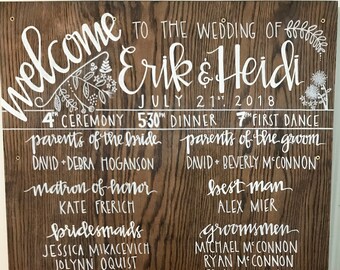 welcome TO THE WEDDING OF
Erik & Heidi
JULY 21ST 2018
4PM CEREMONY 530PM DINNER 7PM FIRST DANCE
parents of the bride
DAVID + DEBRA HOGANSON
parents of the groom
DAVID + BEVERLY McCONNON
matron of honor
KATE FRERICH
best man
ALEX MIER
bridesmaids
JESSICA MIKACEVICH
JOLYNN OQUIST
groomsmen
MICHAEL McCONNON
RYAN McCONNON